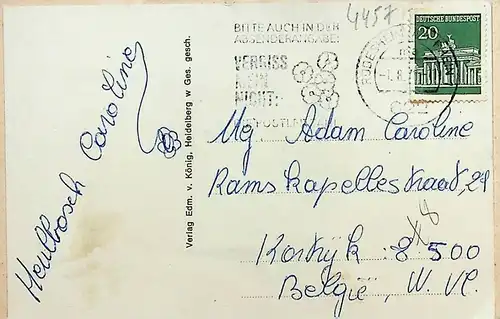 4457
BITTE AUCH IN DER
ABSENDERANGABE!
VERGISS
MEIN
NICHT:
DIE POSTLEITZAHL
DEUTSCHE BUNDESPOST
20
Verlag Edm. v. König, Heidelberg w Ges. gesch.
Caroline
Mej Adam Caroline
Ramskapellestraat, 21
Kortrijk 8500
België, W. Vl.